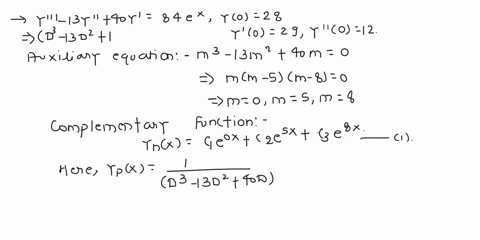 → Y''' -13Y'' +40Y' = 84e^x, Y(0) = 28
⇒ (D³ -13D² +1 Y'(0) = 29, Y''(0) = 12.
Auxiliary equation:- m³ -13m² + 40m = 0
⇒ m(m-5)(m-8) = 0
⇒ m = 0, m = 5, m = 8
Complementary Function:-
Yh(x) = C₁e^0x + C₂e^5x + C₃e^8x. —— (1).
Here, Yp(x) = 1/(D³ -13D² + 40D)